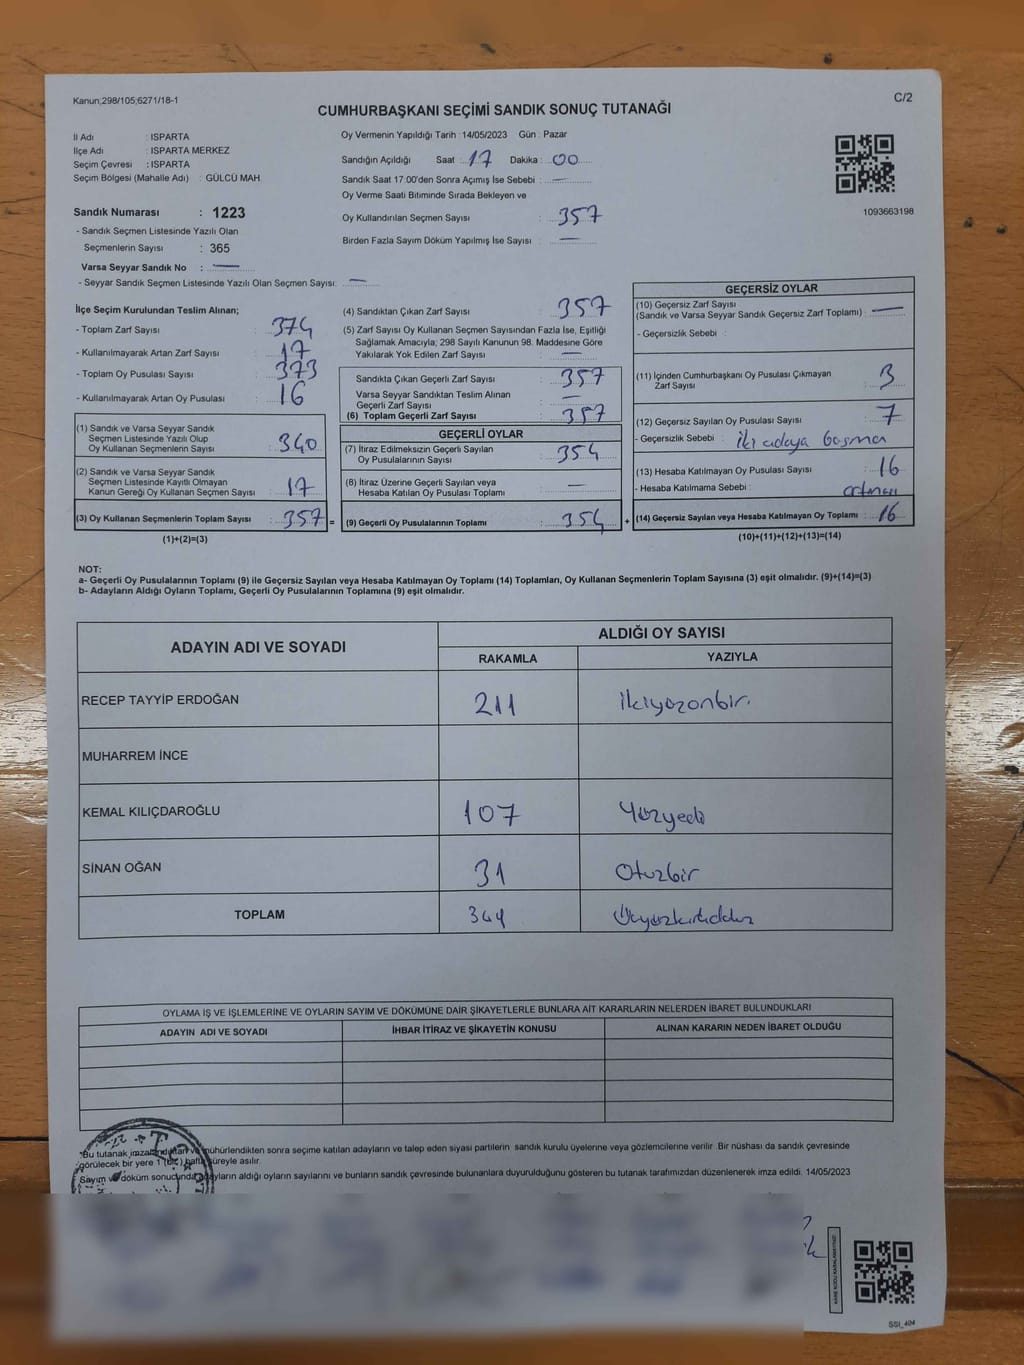 Kanun;298/105;6271/18-1
C/2
CUMHURBAŞKANI SEÇİMİ SANDIK SONUÇ TUTANAĞI
İl Adı : ISPARTA
İlçe Adı : ISPARTA MERKEZ
Seçim Çevresi : ISPARTA
Seçim Bölgesi (Mahalle Adı) : GÜLCÜ MAH.
Sandık Numarası : 1223
- Sandık Seçmen Listesinde Yazılı Olan
Seçmenlerin Sayısı : 365
Varsa Seyyar Sandık No : —
- Seyyar Sandık Seçmen Listesinde Yazılı Olan Seçmen Sayısı: —
Oy Vermenin Yapıldığı Tarih : 14/05/2023 Gün : Pazar
Sandığın Açıldığı Saat : 17 Dakika : 00
Sandık Saat 17:00'den Sonra Açımış İse Sebebi : —
Oy Verme Saati Bitiminde Sırada Bekleyen ve
Oy Kullandırılan Seçmen Sayısı : 357
Birden Fazla Sayım Döküm Yapılmış İse Sayısı : —
1093663198
İlçe Seçim Kurulundan Teslim Alınan;
- Toplam Zarf Sayısı : 374
- Kullanılmayarak Artan Zarf Sayısı : 17
- Toplam Oy Pusulası Sayısı : 373
- Kullanılmayarak Artan Oy Pusulası : 16
(1) Sandık ve Varsa Seyyar Sandık
Seçmen Listesinde Yazılı Olup
Oy Kullanan Seçmenlerin Sayısı : 340
(2) Sandık ve Varsa Seyyar Sandık
Seçmen Listesinde Kayıtlı Olmayan
Kanun Gereği Oy Kullanan Seçmen Sayısı : 17
(3) Oy Kullanan Seçmenlerin Toplam Sayısı : 357 =
(1)+(2)=(3)
(4) Sandıktan Çıkan Zarf Sayısı : 357
(5) Zarf Sayısı Oy Kullanan Seçmen Sayısından Fazla İse, Eşitliği
Sağlamak Amacıyla; 298 Sayılı Kanunun 98. Maddesine Göre
Yakılarak Yok Edilen Zarf Sayısı : —
Sandıkta Çıkan Geçerli Zarf Sayısı : 357
Varsa Seyyar Sandıktan Teslim Alınan
Geçerli Zarf Sayısı : —
(6) Toplam Geçerli Zarf Sayısı : 357
GEÇERLİ OYLAR
(7) İtiraz Edilmeksizin Geçerli Sayılan
Oy Pusulalarının Sayısı : 354
(8) İtiraz Üzerine Geçerli Sayılan veya
Hesaba Katılan Oy Pusulası Toplamı : —
(9) Geçerli Oy Pusulalarının Toplamı : 354 +
GEÇERSİZ OYLAR
(10) Geçersiz Zarf Sayısı
(Sandık ve Varsa Seyyar Sandık Geçersiz Zarf Toplamı) : —
- Geçersizlik Sebebi :
(11) İçinden Cumhurbaşkanı Oy Pusulası Çıkmayan
Zarf Sayısı : 3
(12) Geçersiz Sayılan Oy Pusulası Sayısı : 7
- Geçersizlik Sebebi : iki adaya basma
(13) Hesaba Katılmayan Oy Pusulası Sayısı : 16
- Hesaba Katılmama Sebebi :
(14) Geçersiz Sayılan veya Hesaba Katılmayan Oy Toplamı : 16
(10)+(11)+(12)+(13)=(14)
NOT:
a- Geçerli Oy Pusulalarının Toplamı (9) ile Geçersiz Sayılan veya Hesaba Katılmayan Oy Toplamı (14) Toplamları, Oy Kullanan Seçmenlerin Toplam Sayısına (3) eşit olmalıdır. (9)+(14)=(3)
b- Adayların Aldığı Oyların Toplamı, Geçerli Oy Pusulalarının Toplamına (9) eşit olmalıdır.
ADAYIN ADI VE SOYADI ALDIĞI OY SAYISI
RAKAMLA YAZIYLA
RECEP TAYYİP ERDOĞAN 211 ikiyüzonbir.
MUHARREM İNCE
KEMAL KILIÇDAROĞLU 107 Yüzyedi
SİNAN OĞAN 31 Otuzbir
TOPLAM 349
OYLAMA İŞ VE İŞLEMLERİNE VE OYLARIN SAYIM VE DÖKÜMÜNE DAİR ŞİKAYETLERLE BUNLARA AİT KARARLARIN NELERDEN İBARET BULUNDUKLARI
ADAYIN ADI VE SOYADI İHBAR İTİRAZ VE ŞİKAYETİN KONUSU ALINAN KARARIN NEDEN İBARET OLDUĞU
"Bu tutanak imzalandıktan ve mühürlendikten sonra seçime katılan adayların ve talep eden siyasi partilerin sandık kurulu üyelerine veya gözlemcilerine verilir. Bir nüshası da sandık çevresinde
görülecek bir yere 1 (bir) hafta süreyle asılır.
Sayım ve döküm sonucunda adayların aldığı oyların sayılarını ve bunların sandık çevresinde bulunanlara duyurulduğunu gösteren bu tutanak tarafımızdan düzenlenerek imza edildi. 14/05/2023
SSI_404